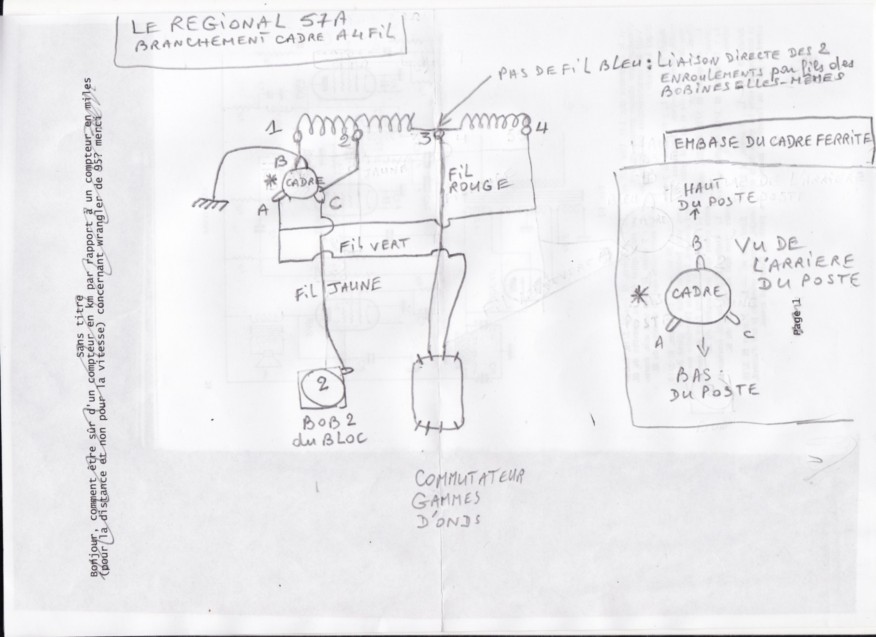 LE REGIONAL 57A
BRANCHEMENT CADRE A 4 FIL
PAS DE FIL BLEU : LIAISON DIRECTE DES 2
ENROULEMENTS par fils des
BOBINES ELLES-MÊMES
1
2
3
4
B
* CADRE
A
C
FIL
ROUGE
FIL VERT
FIL JAUNE
2
BOB 2
du BLOC
COMMUTATEUR
GAMMES
D'ONDS
EMBASE DU CADRE FERRITE
HAUT
DU POSTE
B
VU DE
L'ARRIERE
DU POSTE
* CADRE
A
C
BAS
DU POSTE
Sans titre
Bonjour, comment être sûr d'un compteur en km par rapport à un compteur en miles
(pour la distance et non pour la vitesse) concernant wrangler de 95? merci
Page 1